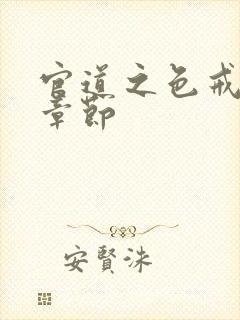 官道之色戒
章節
安賢洙